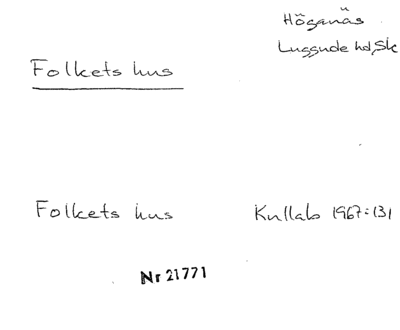 Höganäs
Luggude hd, Sk
Folkets hus
Folkets hus Kullab 1967:131
Nr 21771